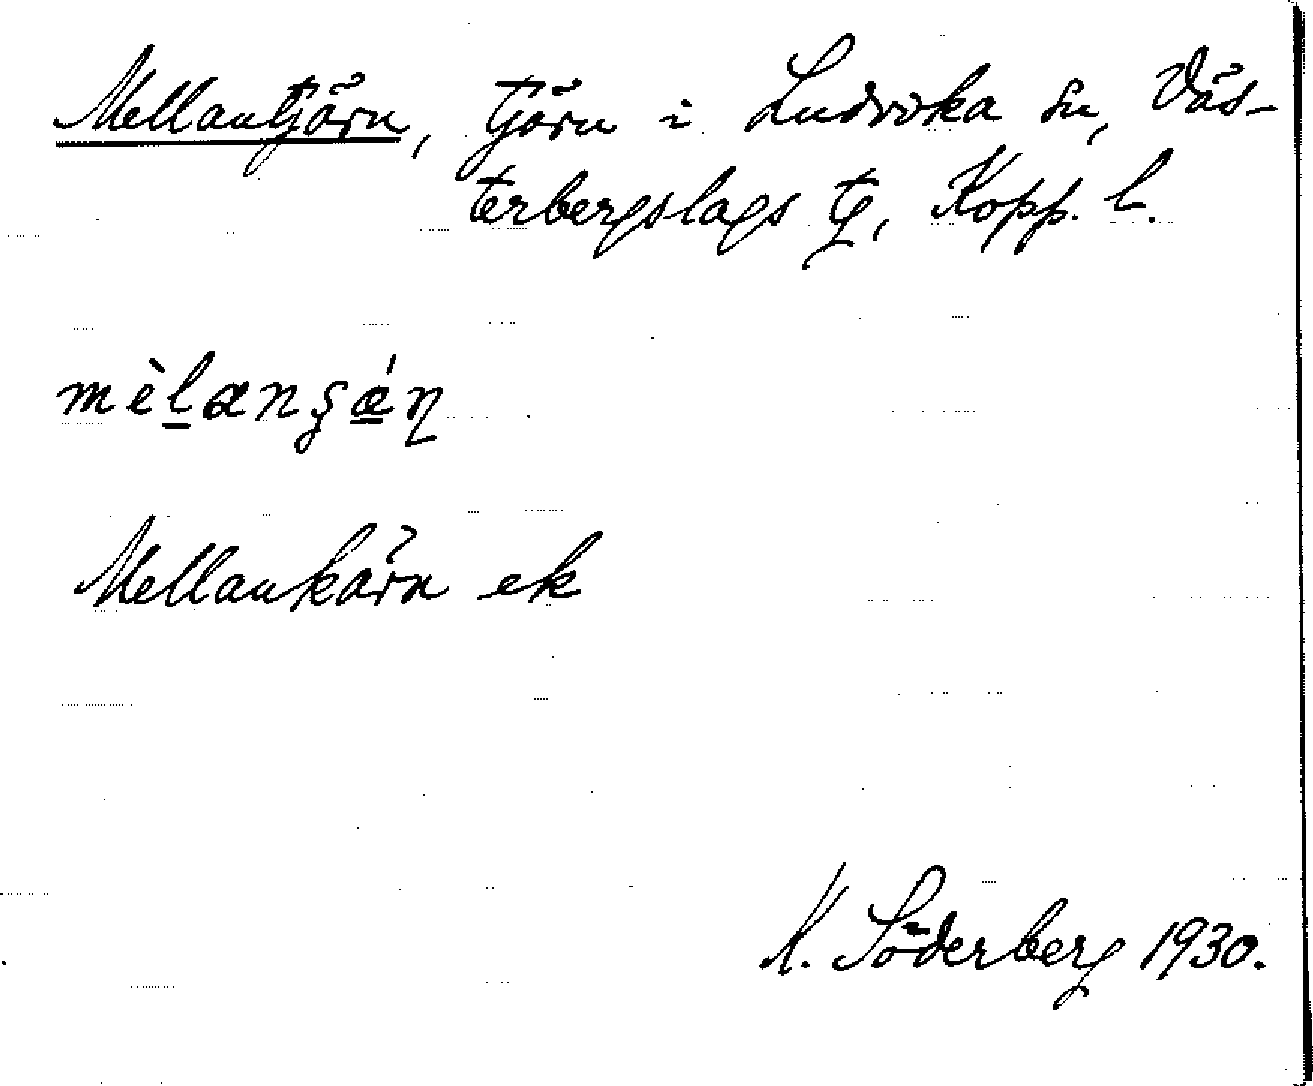 Mellantjärn, tjärn i Ludvika sn, Väs-
terbergslags tg, Kopp. l.
Mellankärn ek
K. Söderberg 1930.